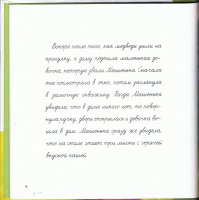 Вскоре после того, как медведи ушли на
прогулку, к дому подошла маленькая де-
вочка, которую звали Машенька. Сначала
она посмотрела в окно, потом заглянула
в замочную скважину. Когда Машенька
увидела, что в доме никого нет, то повер-
нула ручку, дверь открылась и девочка во-
шла в дом. Машенька сразу же увидела,
что на столе стоят три миски с горячей
вкусной кашей.